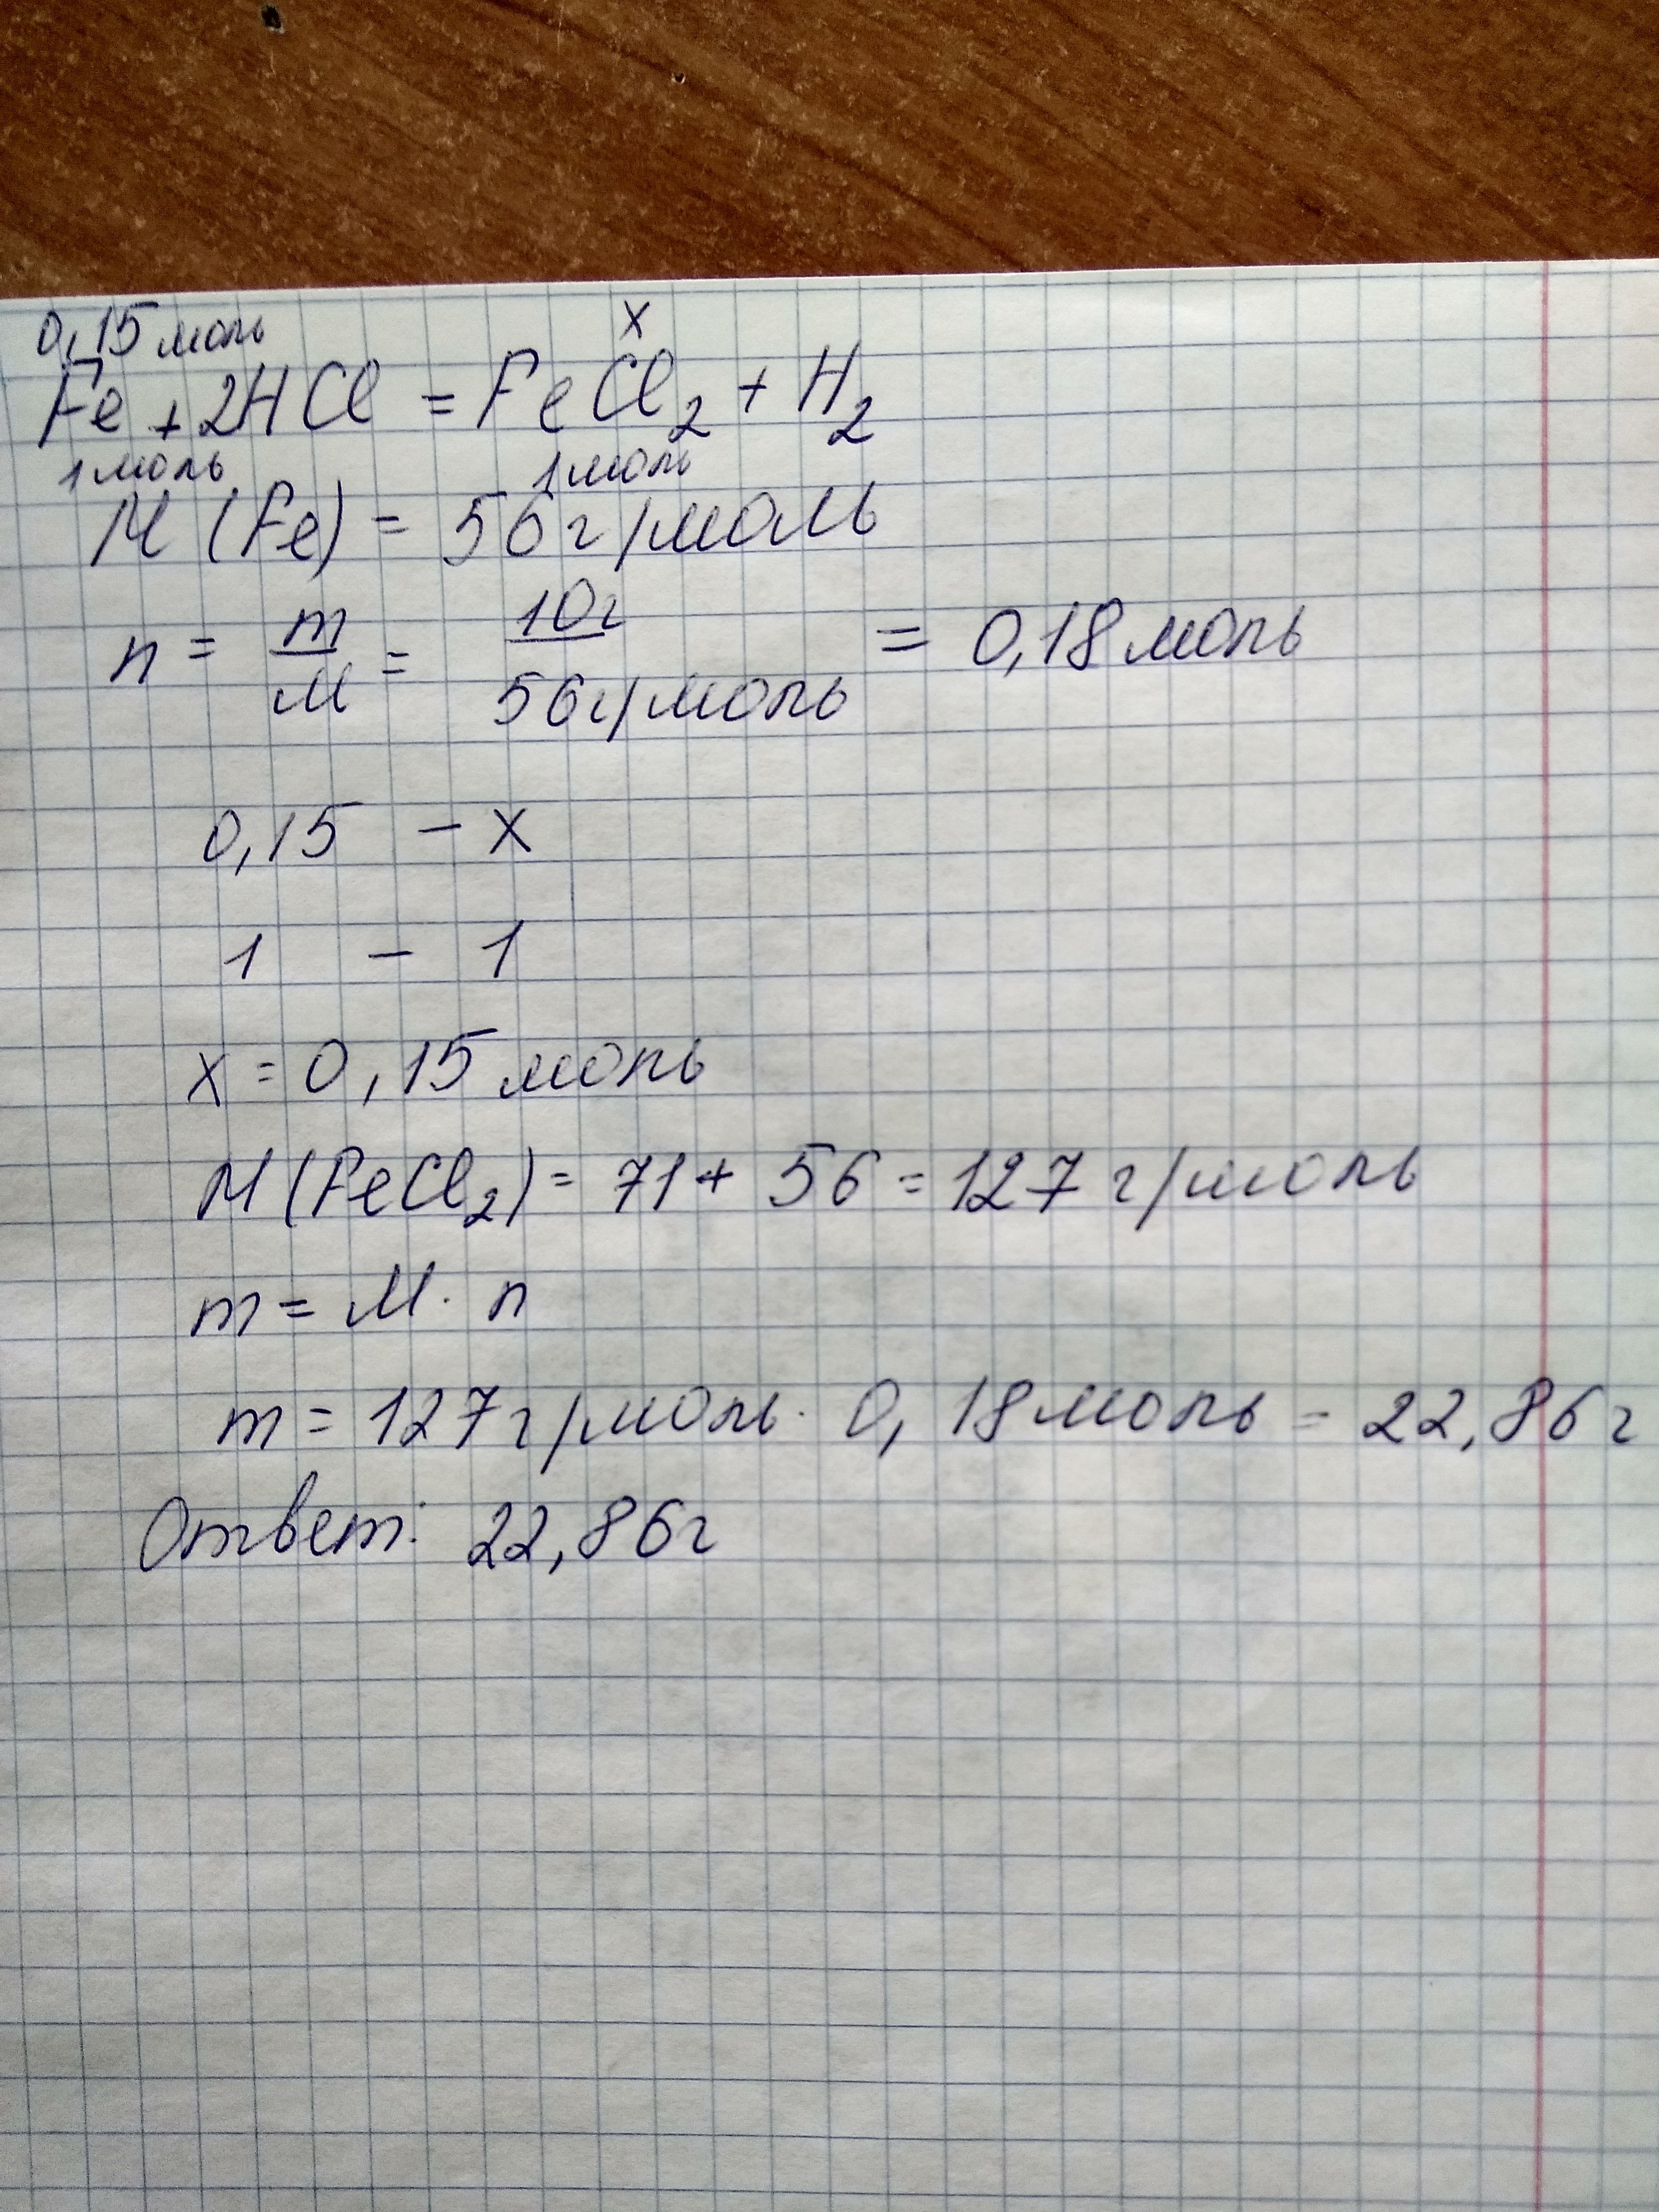 0,15 моль x
Fe + 2HCl = FeCl2 + H2
1 моль 1 моль
M (Fe) = 56 г/моль
n = m/M = 10г/56г/моль = 0,18 моль
0,15 – x
1 – 1
x = 0,15 моль
M (FeCl2) = 71 + 56 = 127 г/моль
m = M · n
m = 127 г/моль · 0,18 моль = 22,86 г
Ответ: 22,86 г